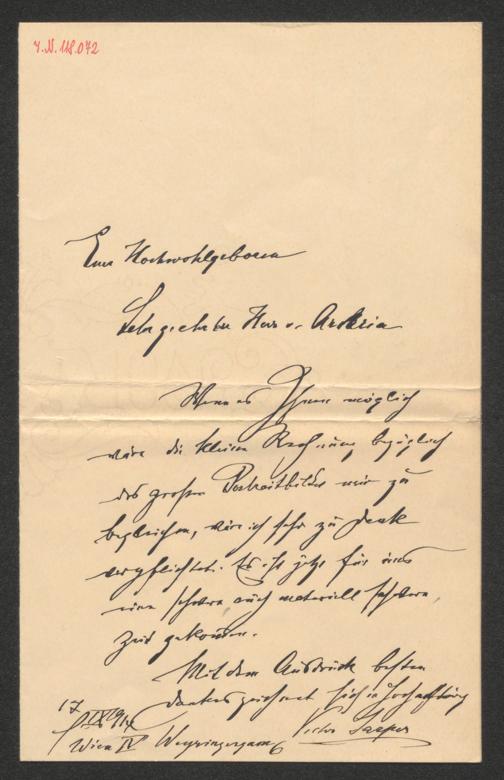 J.N. 118.072
Euer Hochwohlgeboren
Sehr geehrter Herr v. Artaria
Wenn es Ihnen möglich
wäre die kleine Rechnung bezüglich
des großen Portraitbildes mir zu
begleichen, wäre ich sehr zu Dank
verpflichtet. Es ist jetzt für uns
eine schwere, auch materiell schwere,
Zeit gekommen.
Mit dem Ausdruck besten
Dankes zeichnet sich in Hochachtung
17 IX 1914 Victor
Wien IV Weyringergasse